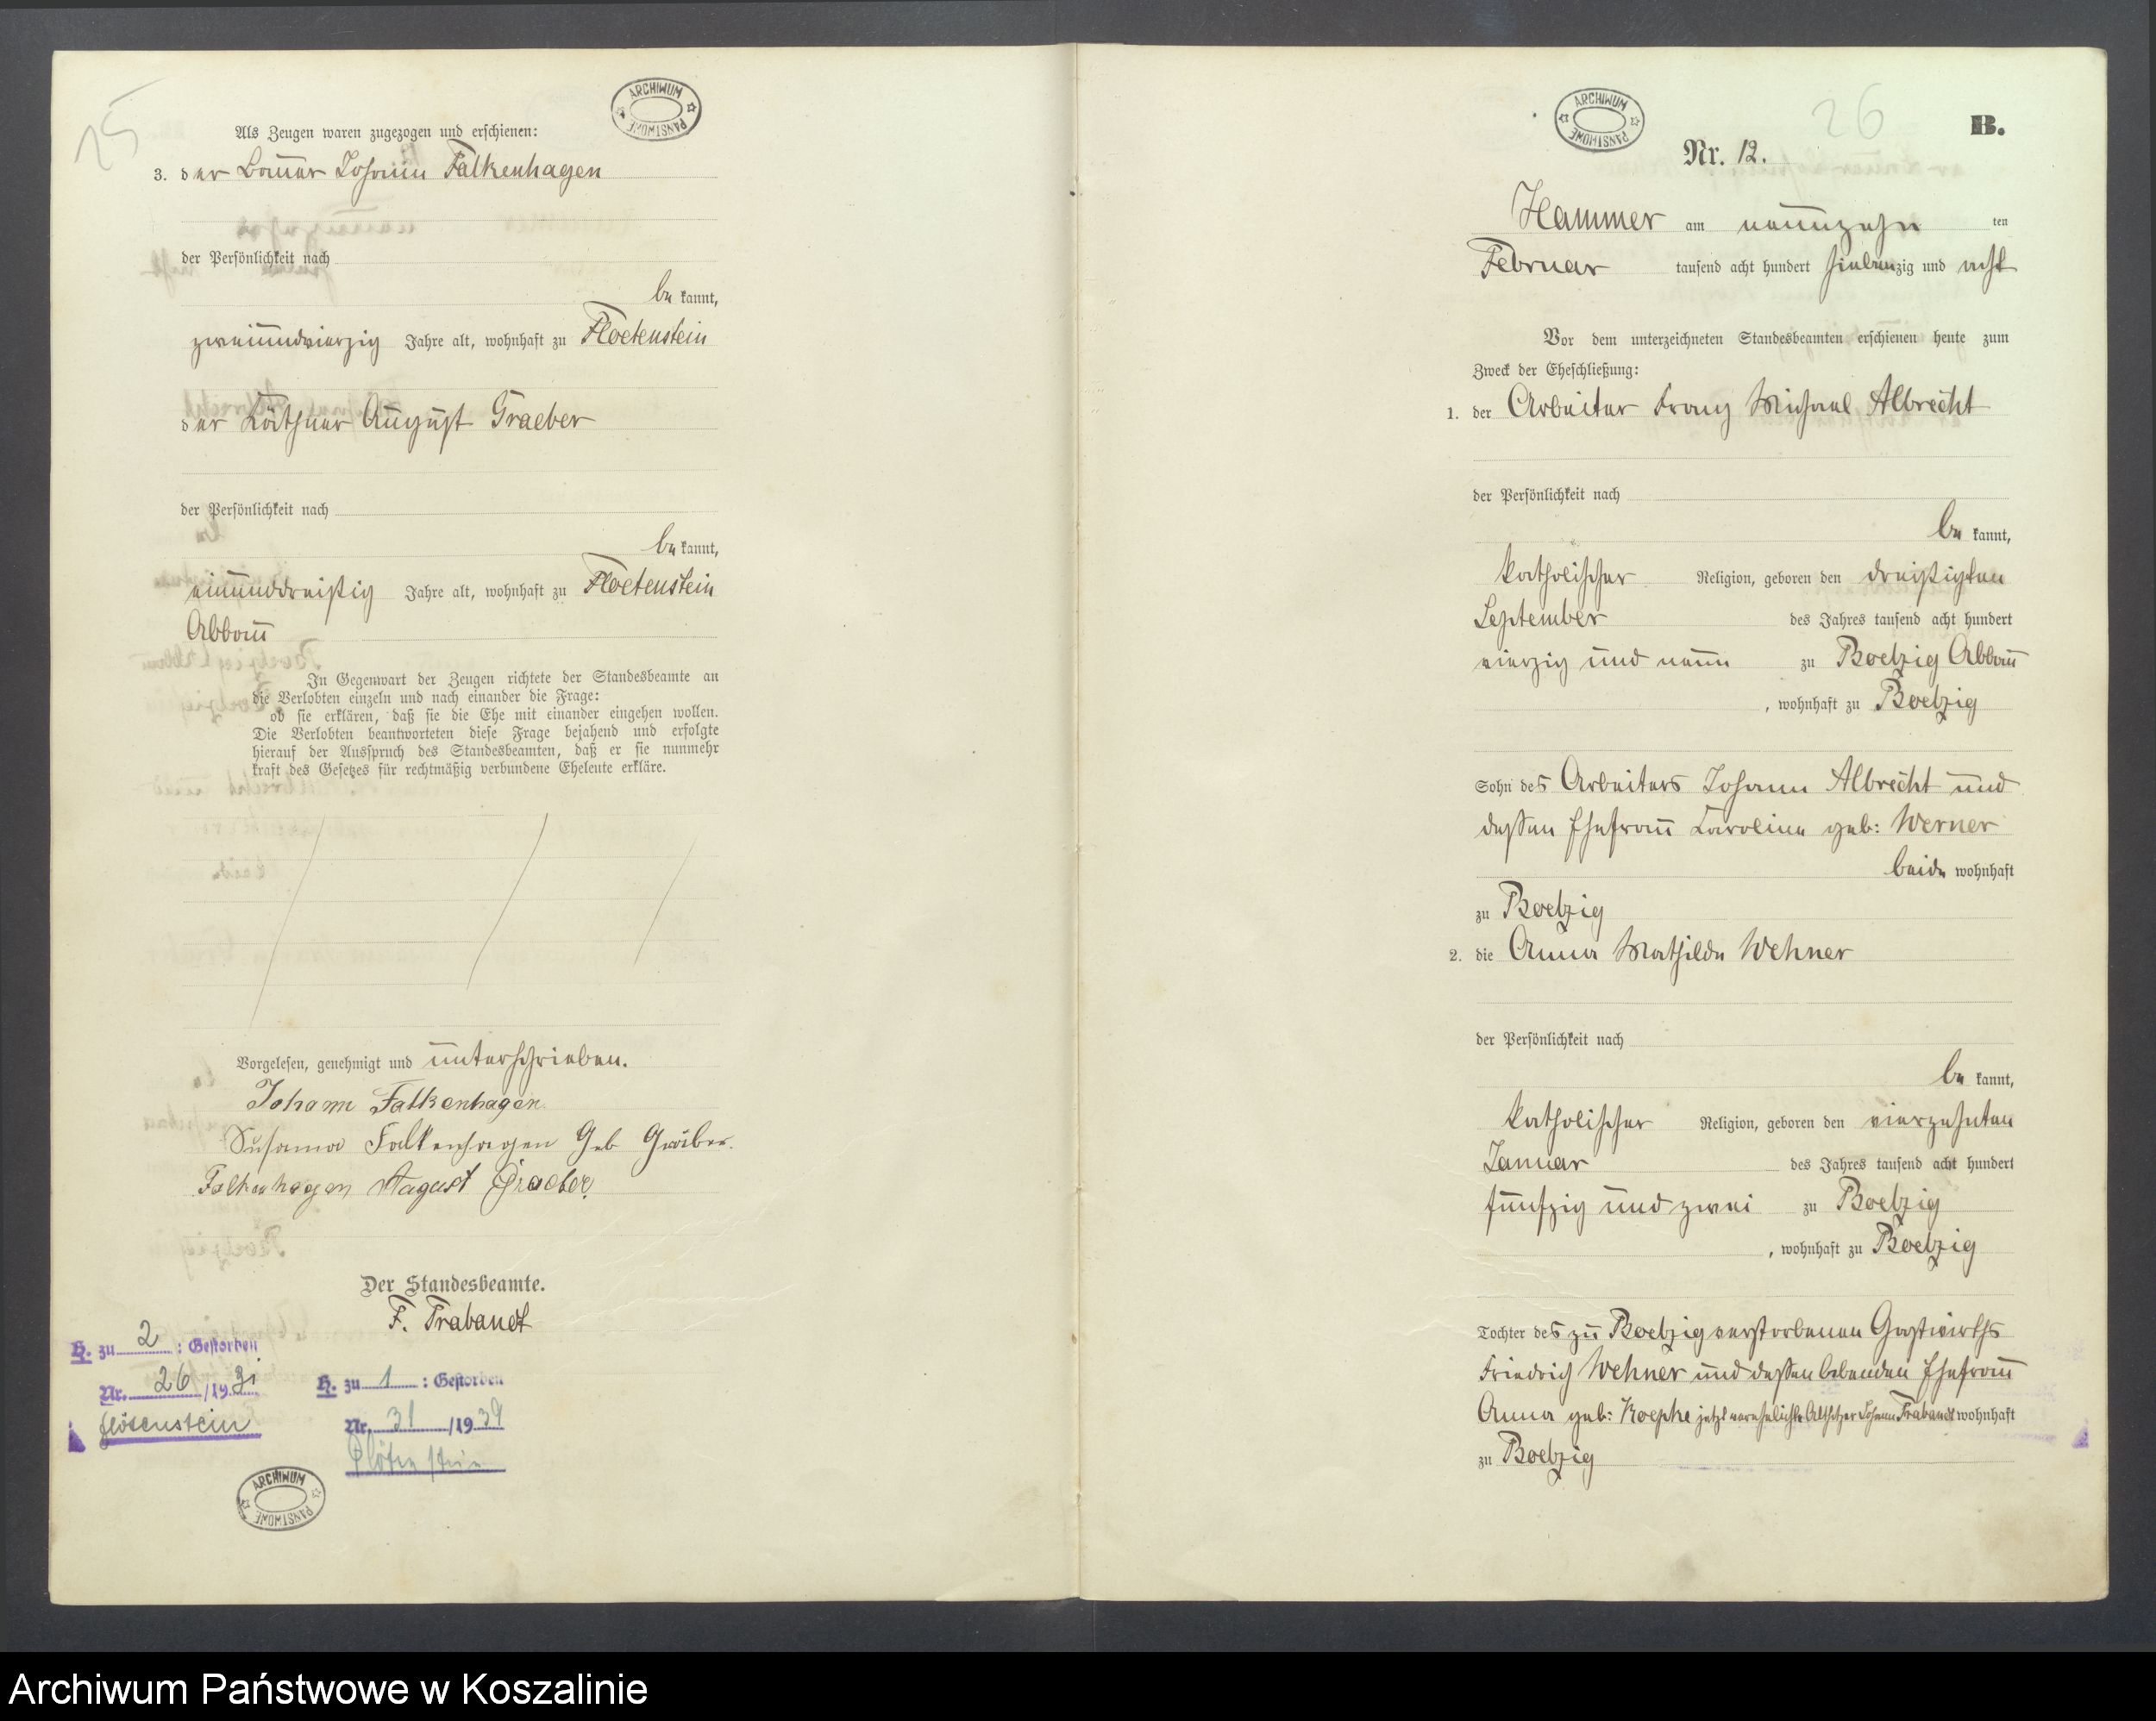 25
ARCHIWUM PAŃSTWOWE
Als Zeugen waren zugezogen und erschienen:
3. der Bauer Johann Falkenhagen
der Persönlichkeit nach
be kannt,
zweiundvierzig Jahre alt, wohnhaft zu Floetenstein
der Käthner August Graeber
der Persönlichkeit nach
be kannt,
einunddreißig Jahre alt, wohnhaft zu Floetenstein
Abbau
In Gegenwart der Zeugen richtete der Standesbeamte an
die Verlobten einzeln und nach einander die Frage:
ob sie erklären, daß sie die Ehe mit einander eingehen wollen.
Die Verlobten beantworteten diese Frage bejahend und erfolgte
hierauf der Ausspruch des Standesbeamten, daß er sie nunmehr
kraft des Gesetzes für rechtmäßig verbundene Eheleute erkläre.
Vorgelesen, genehmigt und unterschrieben.
Johann Falkenhagen
Susanna Falkenhagen Geb Gräber.
Falkenhagen August Graeber
Der Standesbeamte.
F. Trabandt
H. zu 2 : Gestorben
Nr. 26 /1931
Flötenstein
H. zu 1 : Gestorben
Nr. 31 /1939
Flötenstein
ARCHIWUM PAŃSTWOWE
ARCHIWUM PAŃSTWOWE
26
B.
Nr. 12.
Hammer am neunzehn ten
Februar tausend acht hundert siebenzig und acht
Vor dem unterzeichneten Standesbeamten erschienen heute zum
Zweck der Eheschließung:
1. der Arbeiter Franz Michael Albrecht
der Persönlichkeit nach
be kannt,
katholischer Religion, geboren den dreißigsten
September des Jahres tausend acht hundert
vierzig und neun zu Boelzig Abbau
, wohnhaft zu Boelzig
Sohn des Arbeiters Johann Albrecht und
dessen Ehefrau Caroline geb: Werner
beide wohnhaft
zu Boelzig
2. die Anna Mathilde Wehner
der Persönlichkeit nach
be kannt,
katholischer Religion, geboren den vierzehnten
Januar des Jahres tausend acht hundert
fünfzig und zwei zu Boelzig
, wohnhaft zu Boelzig
Tochter des zu Boelzig verstorbenen Gastwirths
Friedrich Wehner und dessen lebenden Ehefrau
Anna geb: Koepke jetzt verehelichte Altsitzer Johann Trabandt wohnhaft
zu Boelzig
Archiwum Państwowe w Koszalinie